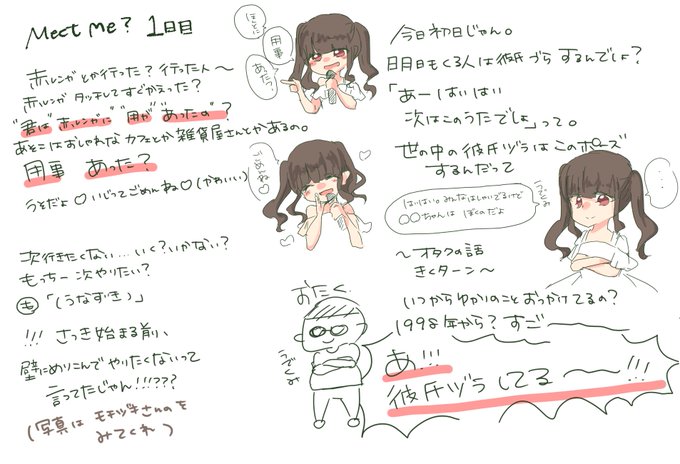 Meet Me? 1日目
赤レンガとか行った?行った人〜
赤レンガ タッチしてすぐかえった?
"君は"赤レンガに"用が"あったの"?
あそこにはおしゃれなカフェとか雑貨屋さんとかあるの。
用事 あった?
うそだよ♡いじってごめんね♡(かわいい)
ほんとに
用事
あった?
ごめんね♡
次行きたくない…いく?いかない?
もっちー次やりたい?
も「(うなずき)」
!!! さっき始まる前、
壁にめりこんでやりたくないって
言ってたじゃん!!!???
(写真はモチヅキさんのを
みてくれ)
今日初日じゃん。
明日もくる人は彼氏づらするんでしょ?
「あーはいはい
次はこのうたでしょ」って。
世の中の彼氏ヅラはこのポーズ
するんだって
…
はいはい。みんなはしゃいでるけど
○○ちゃんはぼくのだよ
うでぐみ
〜オタクの話
きくターン〜
いつからゆかりのことおっかけてるの?
1998年から?すご
おたく
うでぐみ
あ!!!
彼氏ヅラしてる〜〜!!!